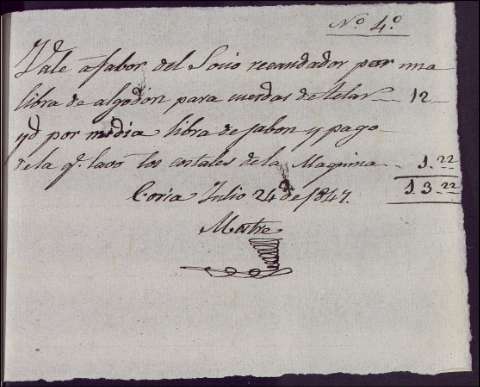 Nº 4º
Vale a fabor del Socio recaudador por una
libra de algodon para cuerdas de telar — 12 —
yd por media libra de jabon y pago
de la q. labó los costales de la Maquina — 1. 22
13 22
Coria Julio 24 de 1847.